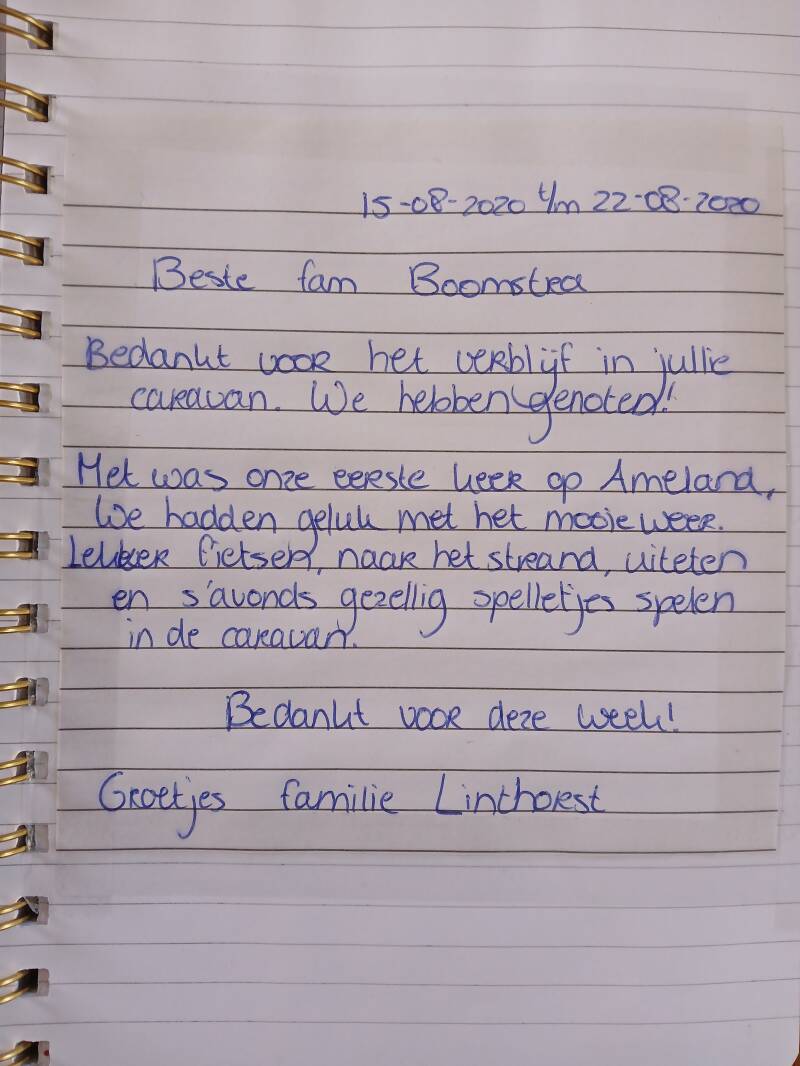 15-08-2020 t/m 22-08-2020
Beste fam Boomstra
Bedankt voor het verblijf in jullie
caravan. We hebben genoten!
Het was onze eerste keer op Ameland,
We hadden geluk met het mooie weer.
Lekker fietsen, naar het strand, uiteten
en s'avonds gezellig spelletjes spelen
in de caravan.
Bedankt voor deze week!
Groetjes familie Linthorst